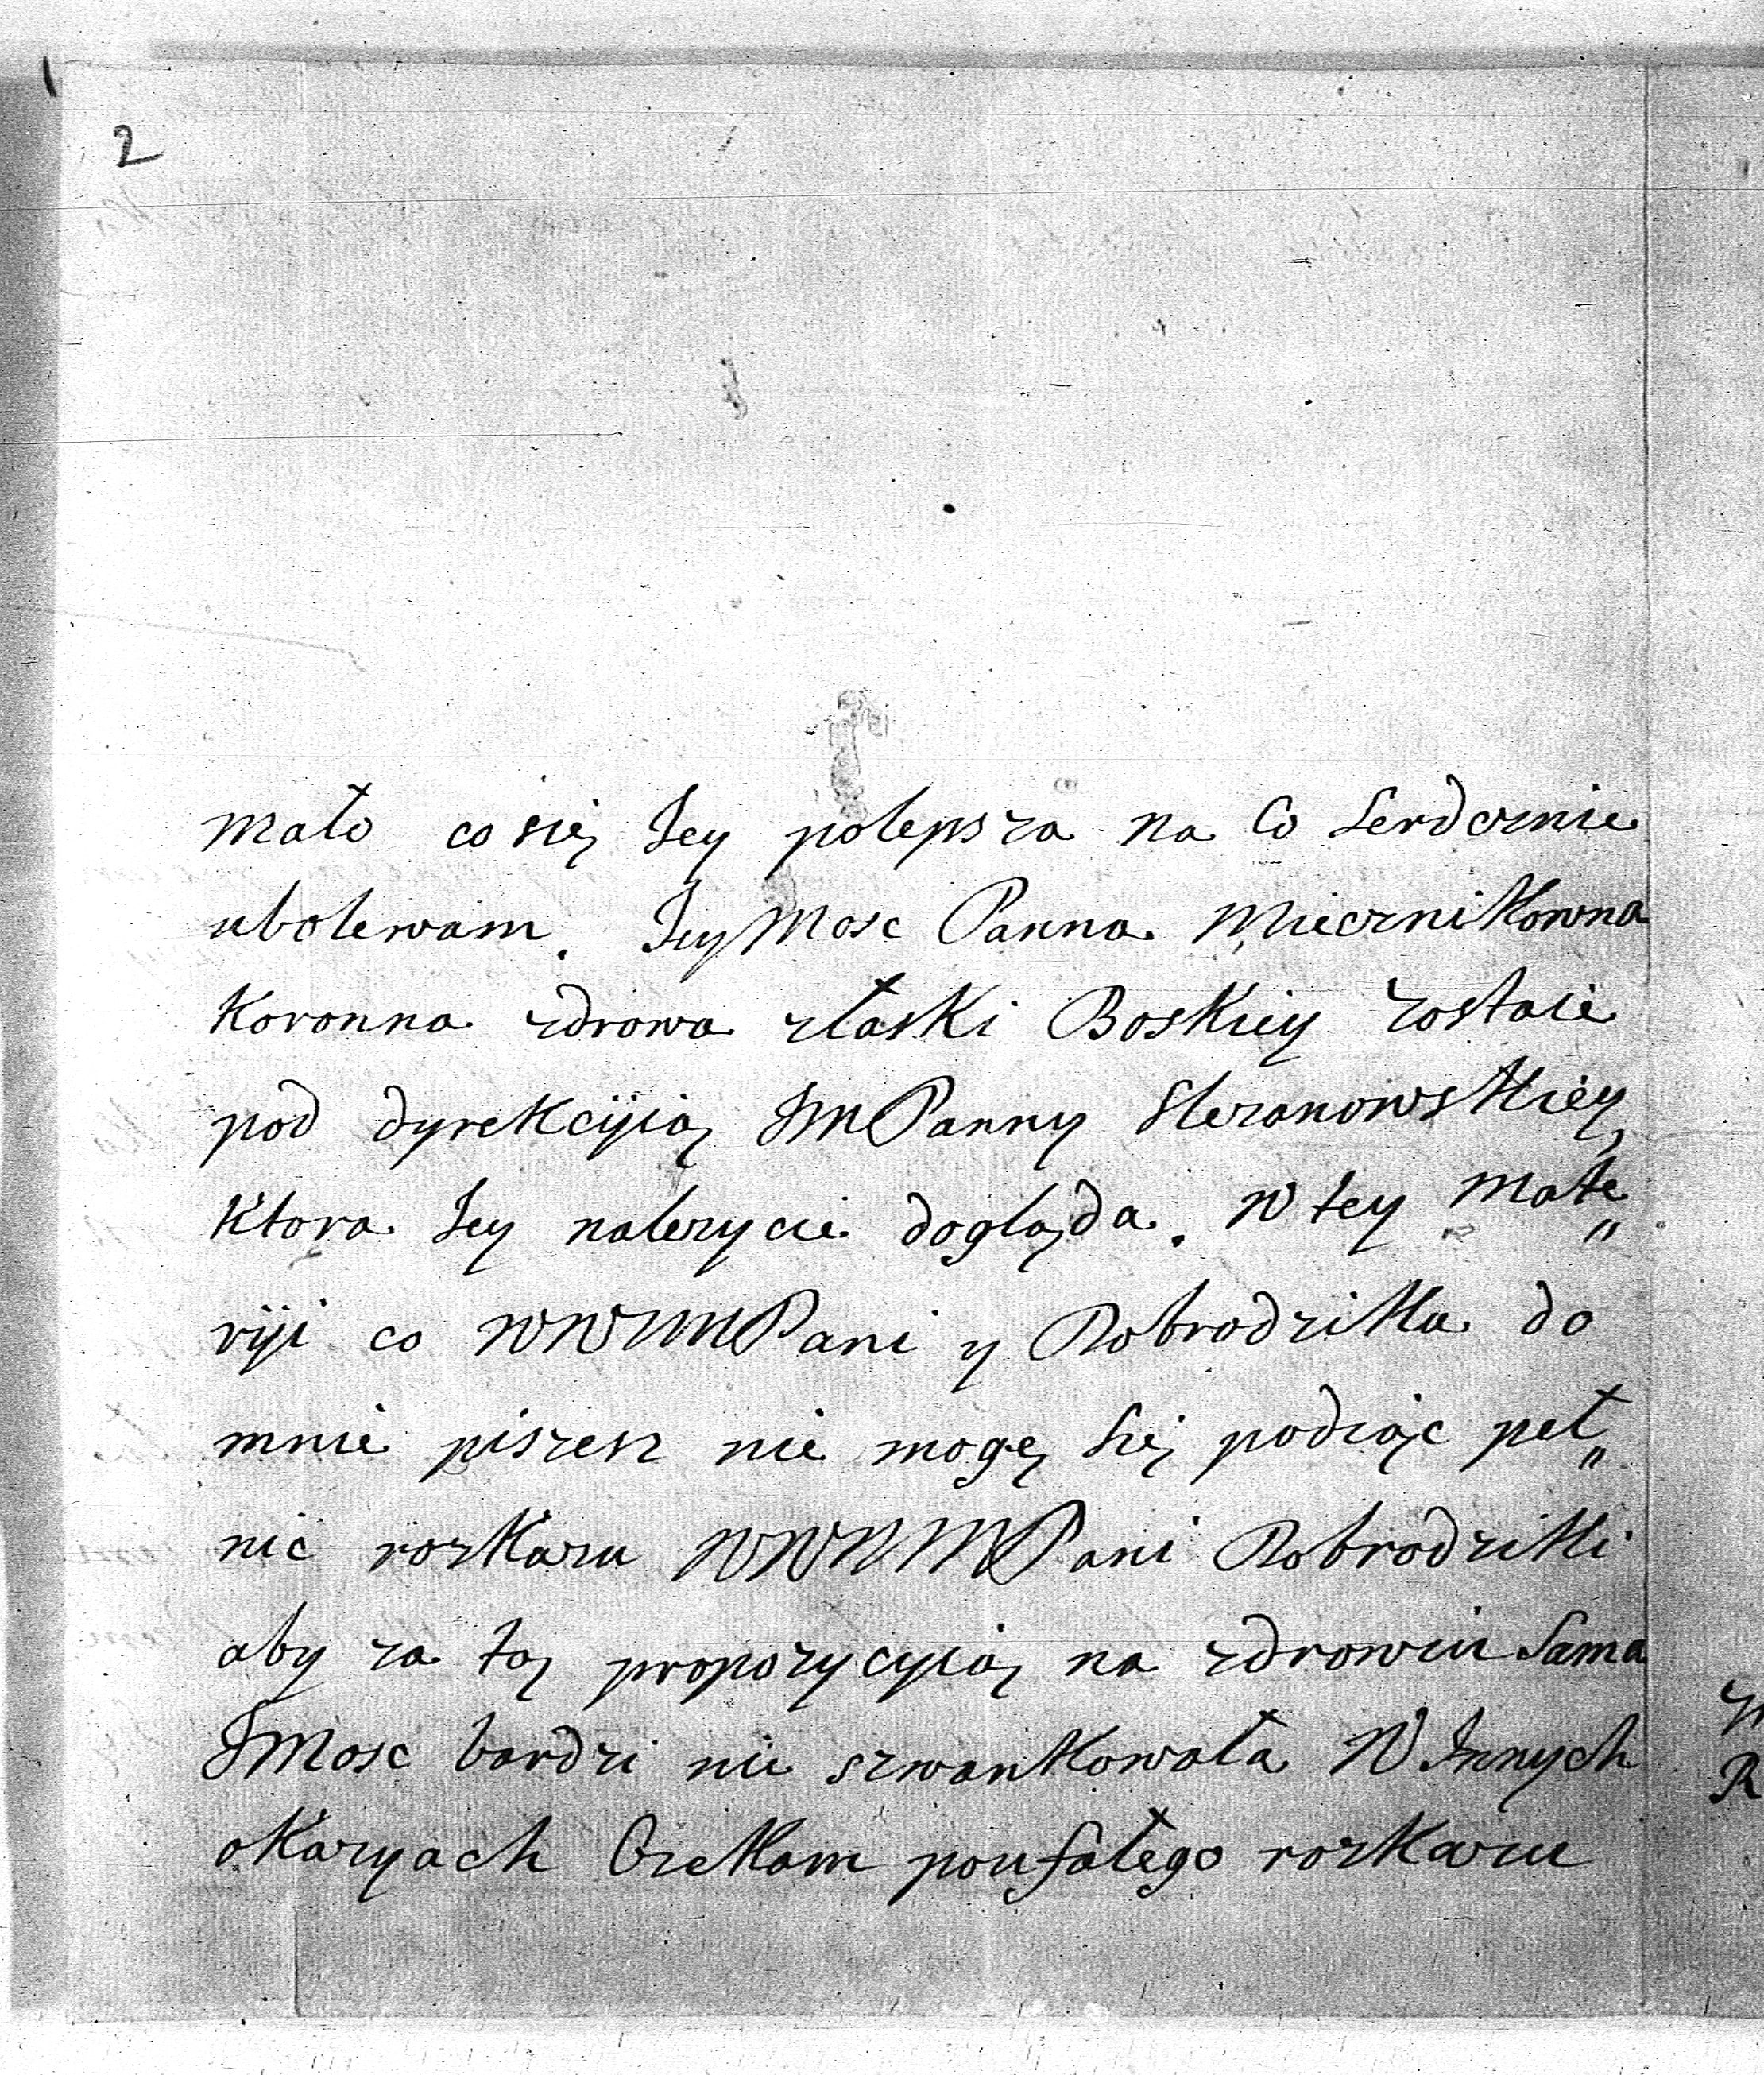 2
mało co się Jey polepsza na Co Serdcznie
ubolewam. JeyMosc Panna Miecznikowna
Koronna zdrowa złaski Boskiey zostaie
pod dyrekcyią JMPanny
Ktora Jey nalezycie dogląda. W tey mate„
ryi co WWMPani y Dobrodzika do
mnie piszesz nie mogę Się podiąc peł„
nic rozkazu WWMMPani Dobrodziki
aby za tą propozycyią na zdrowiu Sama
JMosc bardzi nie szwankowała W Innych
okazyach Czekam poufałego rozkazu